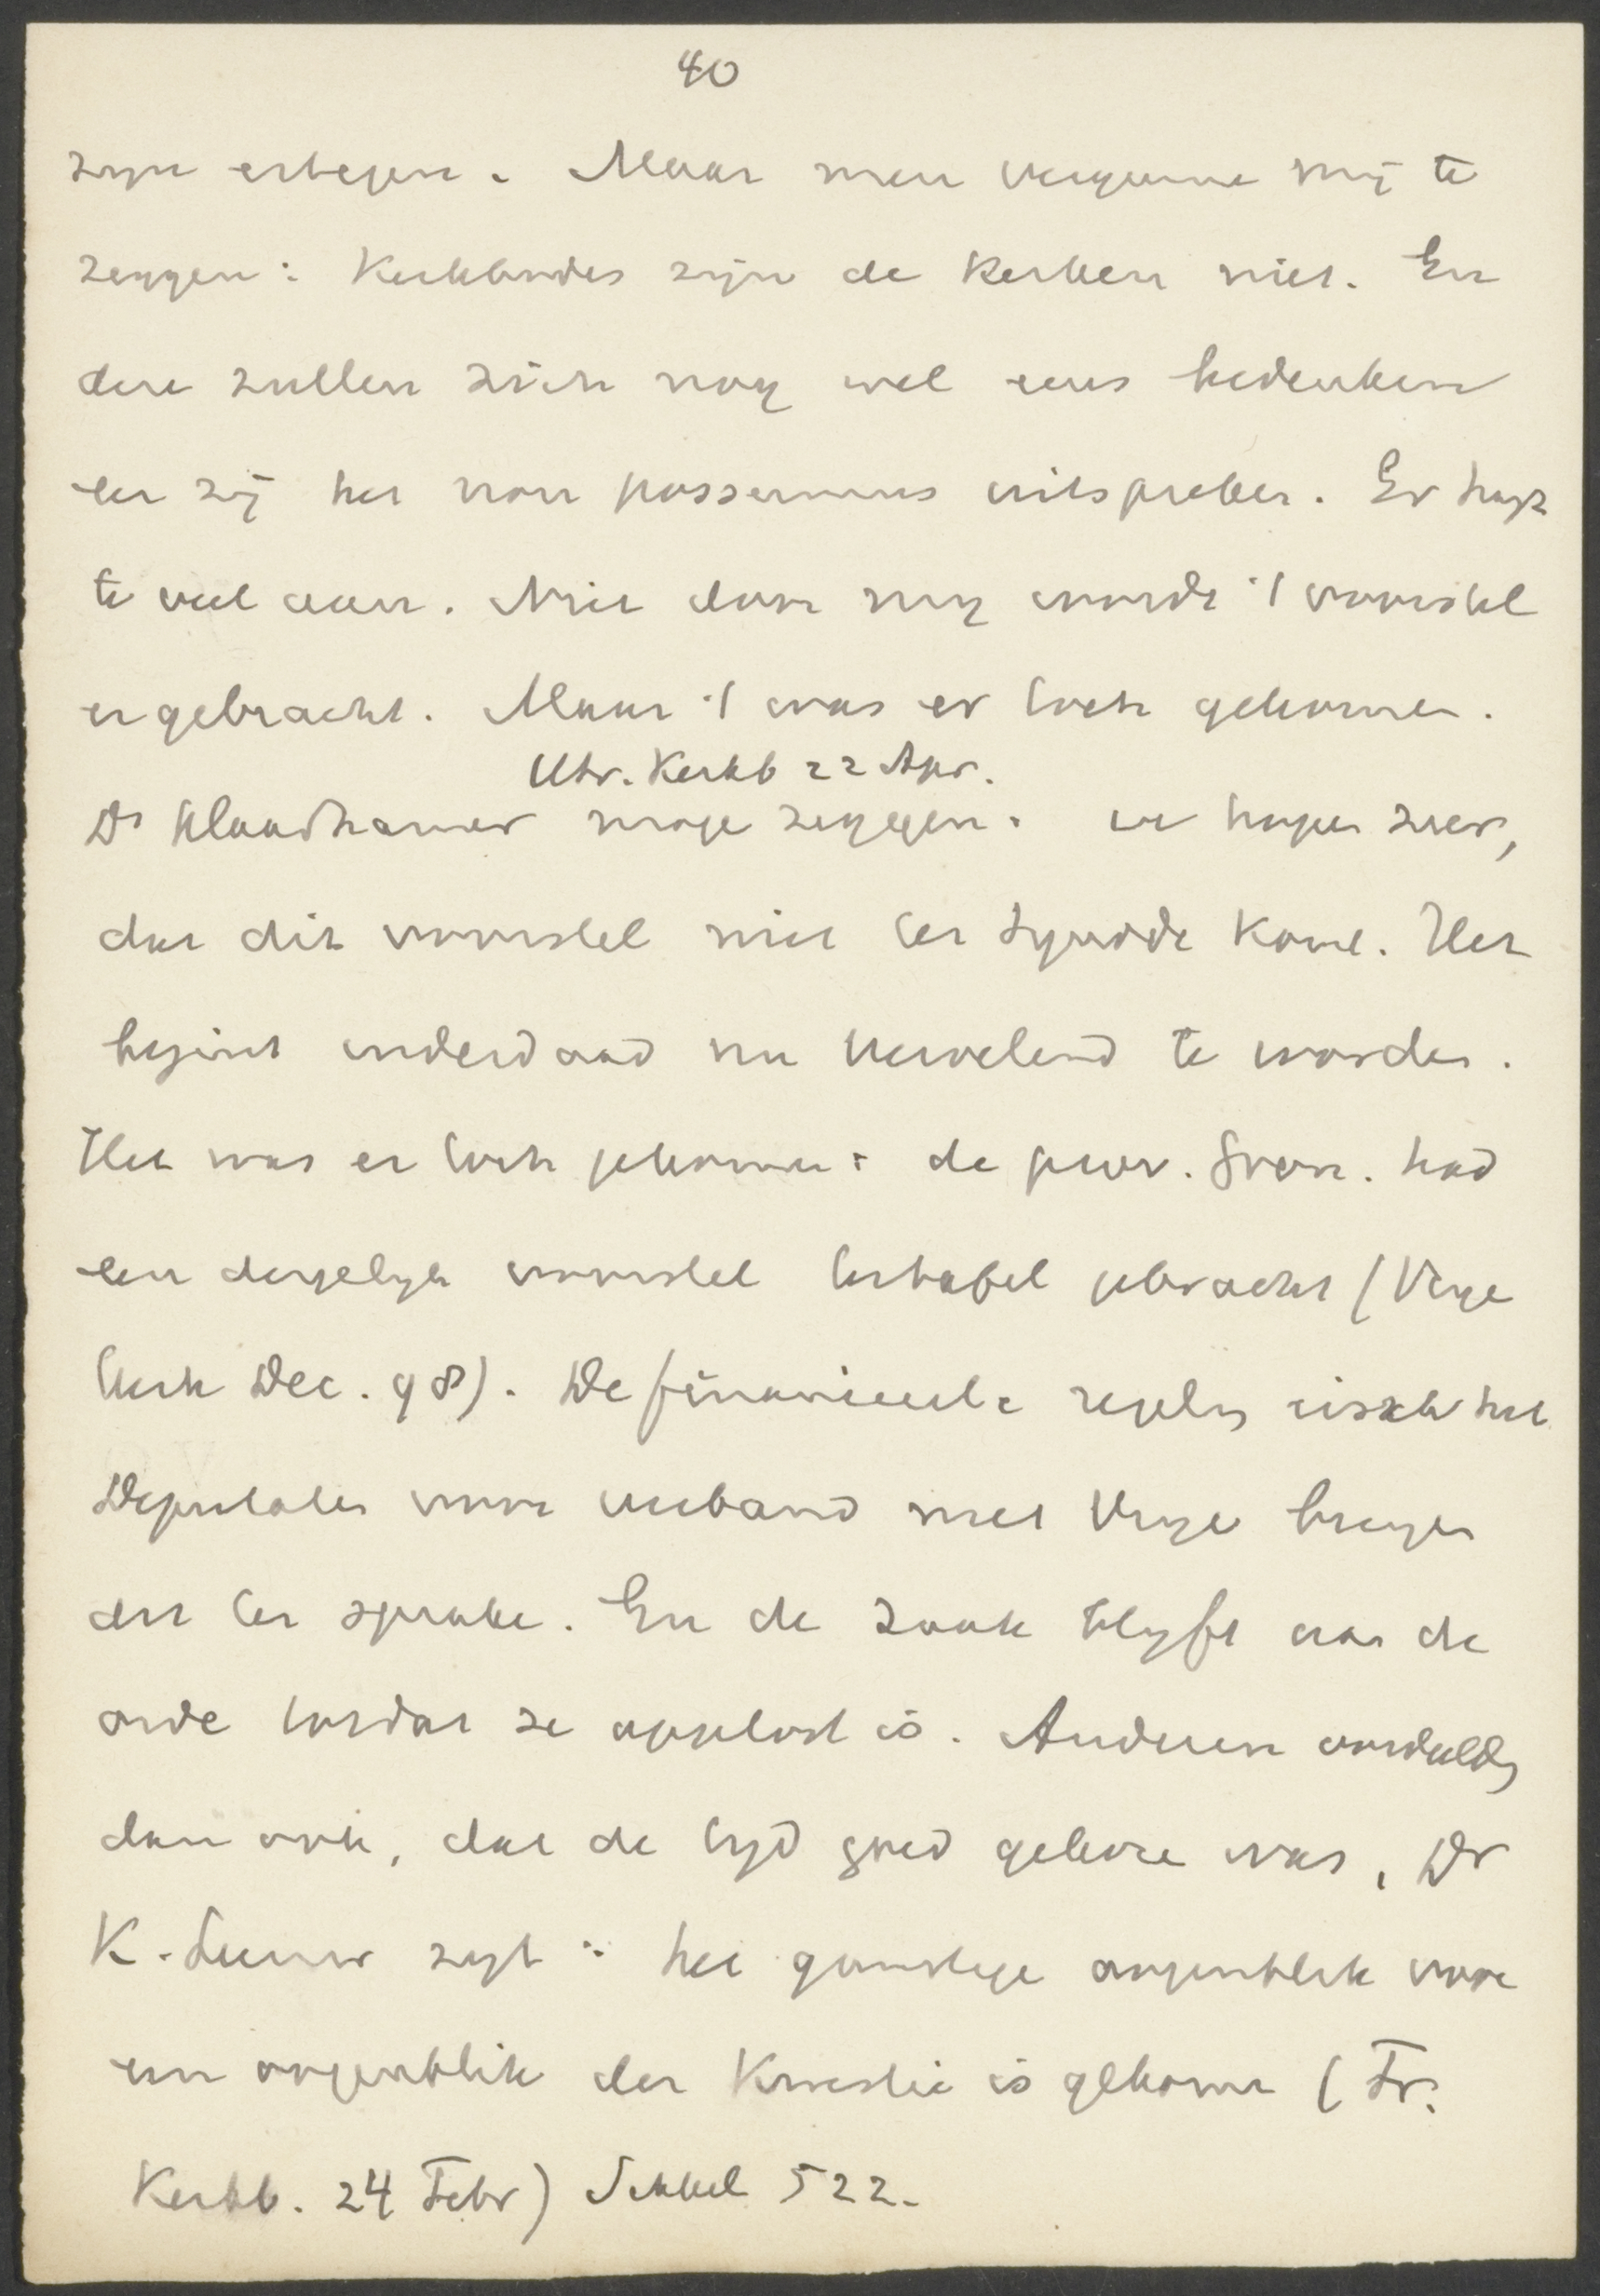 40
zijn ertegen. Maar men vergunne mij te
zeggen: Kerkbodes zijn de Kerken niet. En
deze zullen zich nog wel eens bedenken
eer zij het non possumus uitspreken. Er hangt
te veel aan. Niet door mij werd 't voorstel
er gebracht. Maar 't was er toch gekomen.
Utr. Kerkb 22 Apr.
Ds Klaarhamer moge zeggen: we hopen zeer,
dat dit voorstel niet ter Synode kome. Het
begint inderdaad nu vervelend te worden.
Het was er toch gekomen: de prov. Gron. had
een dergelijk voorstel ter tafel gebracht (Vrije
Kerk Dec. 98). De financieele regeling eischt het
Deputaten voor verband met Vrije brengen
het ter sprake. En de zaak blijft aan de
orde totdat ze opgelost is. Anderen oordeelden
dan ook, dat de tijd goed gekozen was, Dr
K. zegt: het gunstige oogenblik voor
een oogenblik der Kwestie is gekomen (Fr.
Kerkb. 24 Febr) 522.